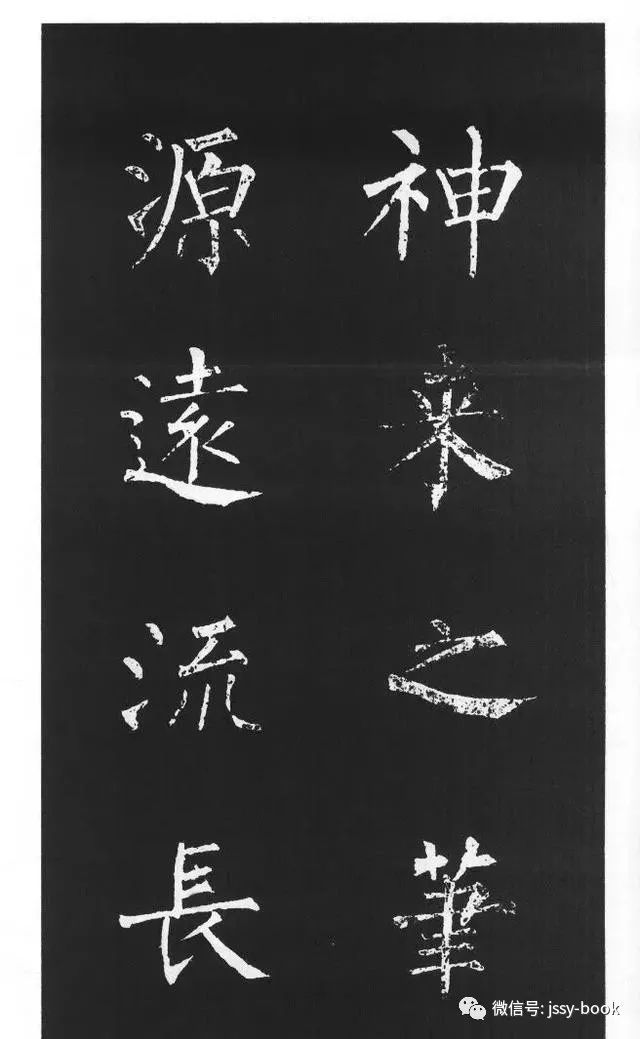 神来之筆
源遠流長
微信号: jssy-book